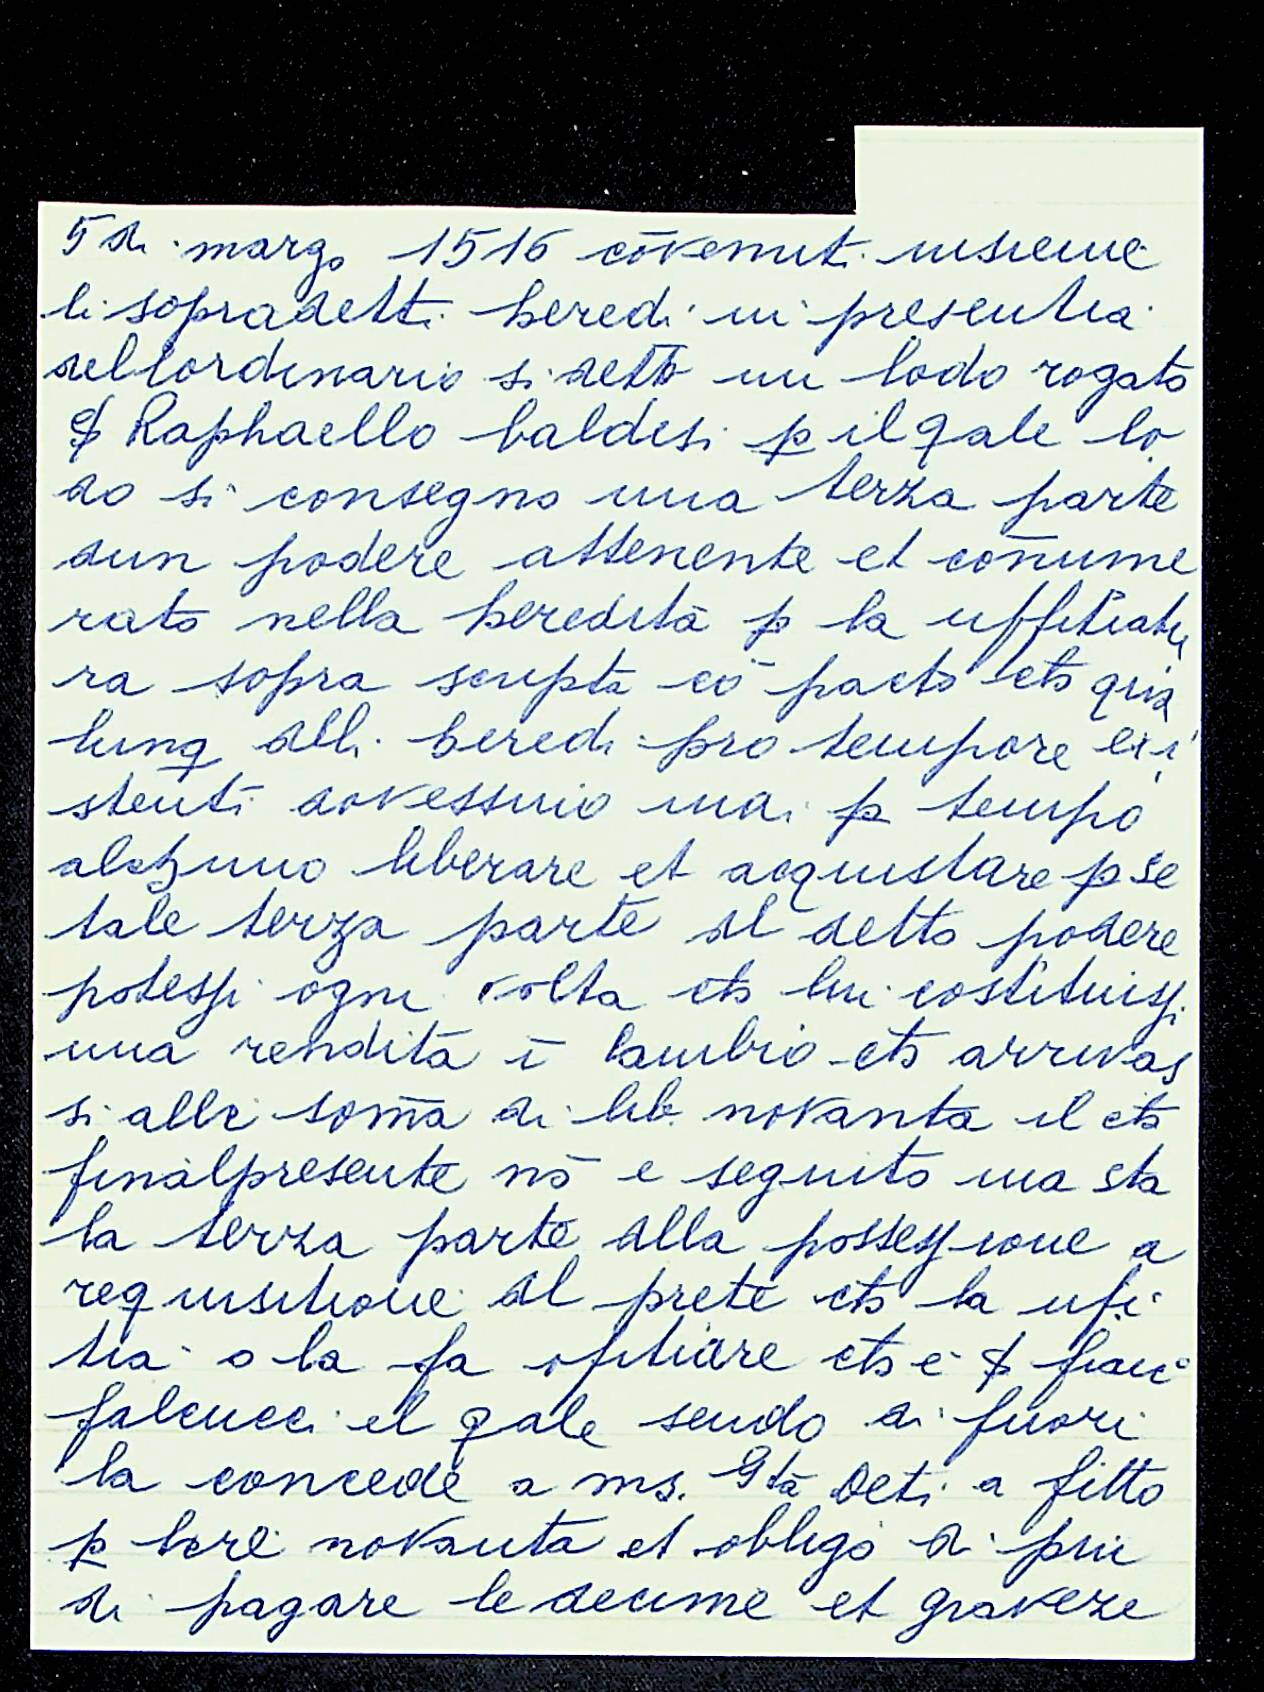 5 di marzo 1516 cōvenuti insieme
li sopradetti heredi in presentia
dellordinario si dette un lodo rogato
Raphaello baldesi p il qale lo
do si consegno una terza parte
dun podere attenente et coñume
rato nella heredità p la uffitiatu
ra sopra scripta cō pacto ch
lunq delli heredi pro tempore exi
stenti dovessino mai p tempo
alchuno liberare et acquistare p se
tale terza parte del detto podere
potessi ogni volta ch lui costituissi
una rendita ī cambio ch arrivas
si alla som̄a di lib. novanta il ch
finalpresente nō e seguito ma sta
la terza parte alla possessione a
requisitione del prete ch la ufi
tia o la fa ofitiare ch e
falcucci el qale sendo di fuori
la concede a ms. Deti a fitto
p lire novanta et obligo di piu
di pagare le decime et graveze